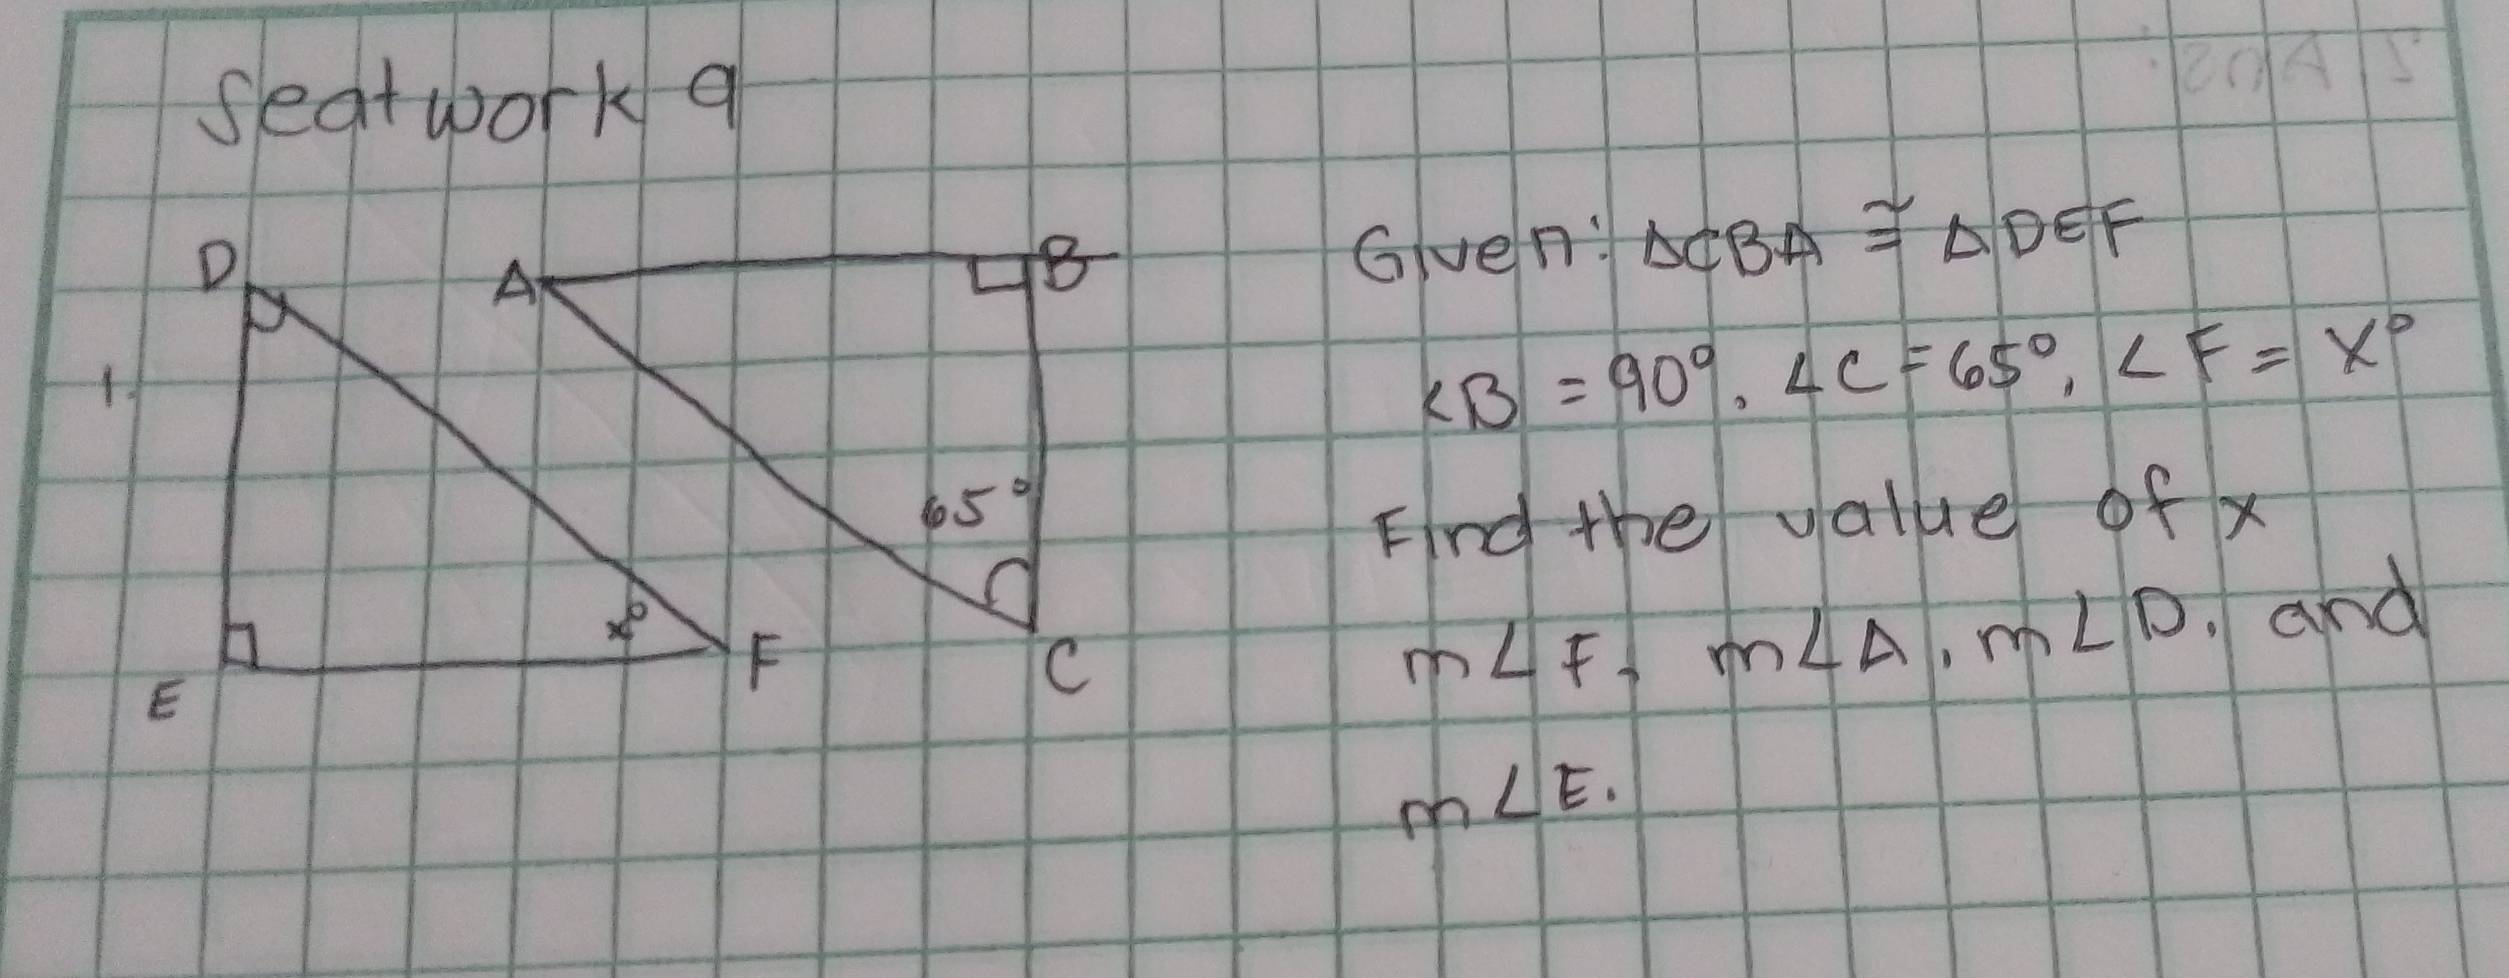 Seatwork 9
1.
D
A
B
65°
x°
E
F
C
Given: ∆CBA ≅ ∆DEF
<B = 90°, ∠C = 65°, ∠F = x°
Find the value of x
m∠F, m∠A, m∠D, and
m∠E.